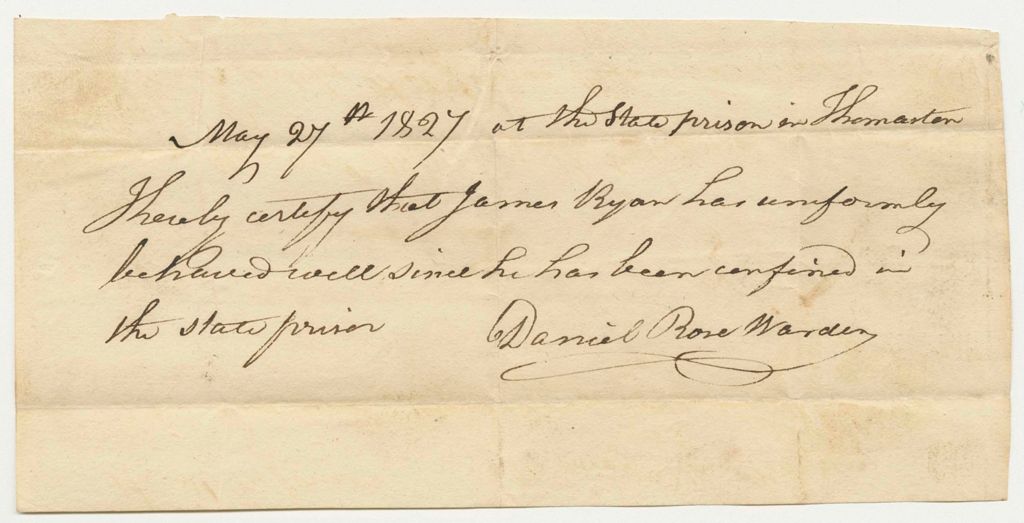 May 27th 1827 at the State prison in Thomaston
I hereby certify that James Ryan has uniformly
behaved well since he has been confined in
the state prison
Daniel Rose Warden